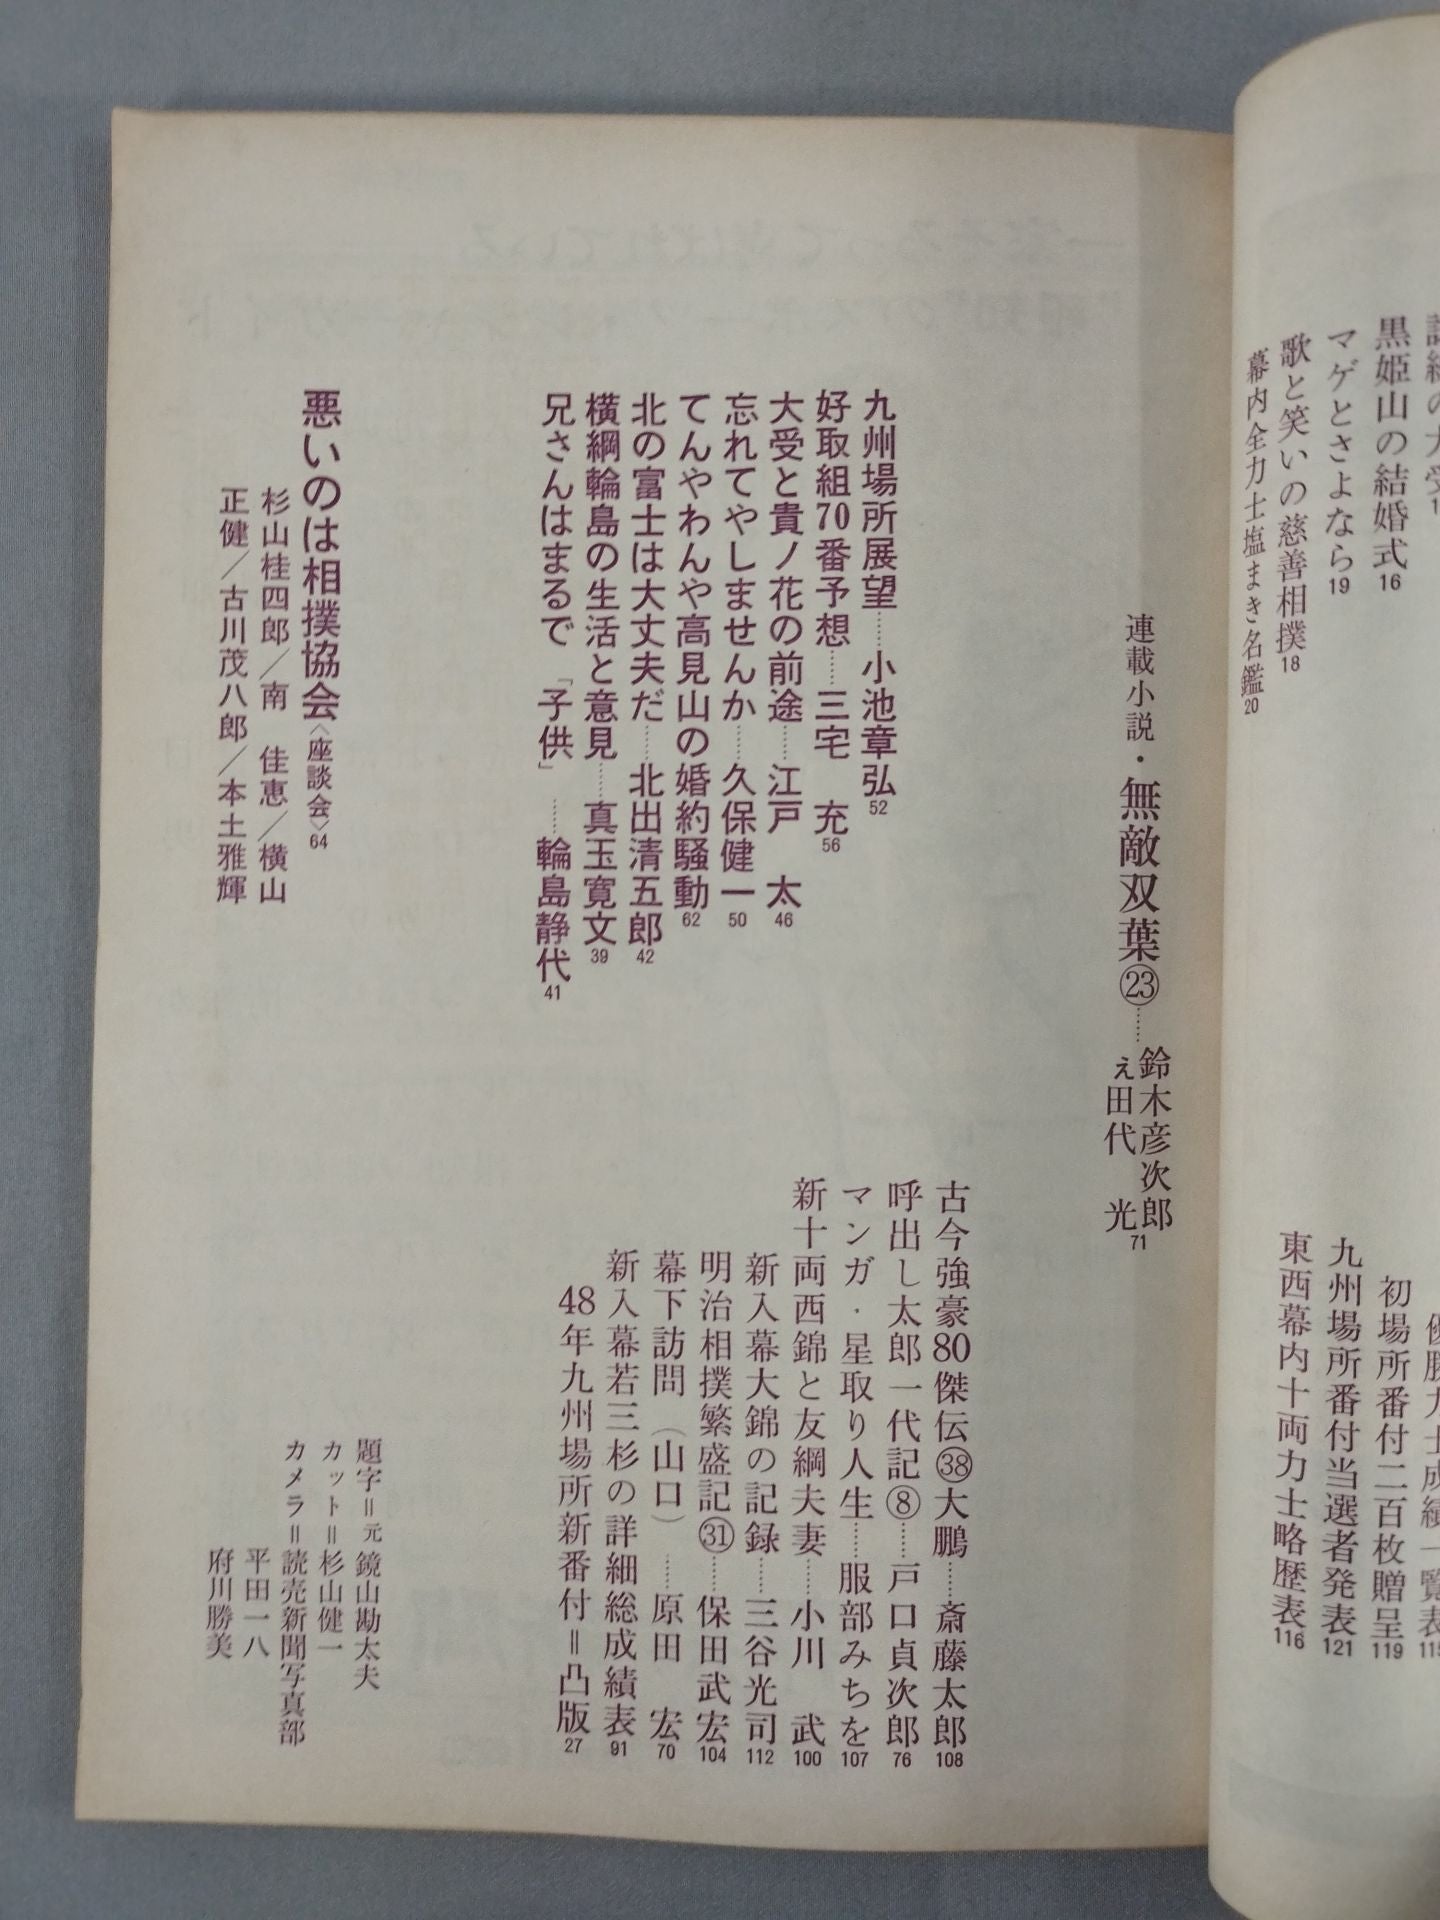 黒姫山の結婚式16
マゲとさよなら19
歌と笑いの慈善相撲18
幕内全力士塩まき名鑑20
初場所番付二百枚贈呈119
九州場所番付当選者発表121
東西幕内十両力士略歴表116
連載小説・無敵双葉㉓……鈴木彦次郎
え田代　光71
九州場所展望……小池章弘52
好取組70番予想……三宅　充56
大受と貴ノ花の前途……江戸　太46
忘れてやしませんか……久保健一50
てんやわんや高見山の婚約騒動62
北の富士は大丈夫だ……北出清五郎42
横綱輪島の生活と意見……真玉寛文39
兄さんはまるで「子供」……輪島静代41
悪いのは相撲協会〈座談会〉64
杉山桂四郎／南　佳恵／横山
正健／古川茂八郎／本土雅輝
古今強豪80傑伝㊳大鵬……斎藤太郎108
呼出し太郎一代記⑧……戸口貞次郎76
マンガ・星取り人生……服部みちを107
新十両西錦と友綱夫妻……小川　武100
新入幕大錦の記録……三谷光司112
明治相撲繁盛記㉛……保田武宏104
幕下訪問（山口）……原田　宏70
新入幕若三杉の詳細総成績表91
48年九州場所新番付＝凸版27
題字＝元鏡山勘太夫
カット＝杉山健一
カメラ＝読売新聞写真部
平田一八
府川勝美